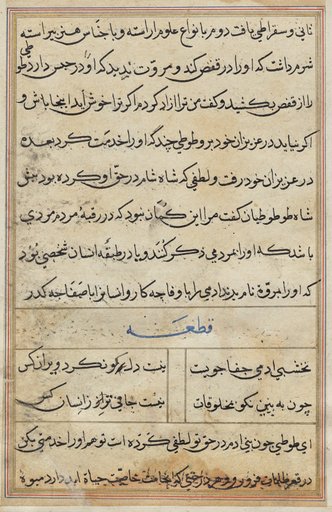 ثانی و سقراطی یافت دوم بانواع علوم اراسته و باجناس هنر پیراسته
شرم داشت که او را در قفص کند و مروت ندید که او را در حبس دارد طوطی
را از قفص بکشید و کفت من ترا ازاد کردم اکر ترا خوش آید اینجا باش و
اکر نیاید در عزیزان خود برو طوطی چند کاه او را خدمت کرد بعده
در عزیزان خود رفت و لطفی که شاه شام در حق او کرده بود پیش
شاه طوطیان کفت مرا این کمان نبود که در رقبه مردم مردی
باشد که او را بمردمی ذکر کنند و یا در طبقه انسان شخصی بود
که او را بمروت نام برند ادمی را با وفا چه کار و انسان را با صفا چه کدر
قطعه
نخشبی ادمی جفا جویست
نیست دل کو نکرد ویران کس
چون به بینی نکو بمخلوقات
نیست جافی تر از انسان کس
ای طوطی چون بنی ادم در حق تو لطفی کرده است تو هم او را خدمتی بکن
در قعر ظلمات فرو رو و هر درختی که خاصیت حیاة ابد دارد میوه